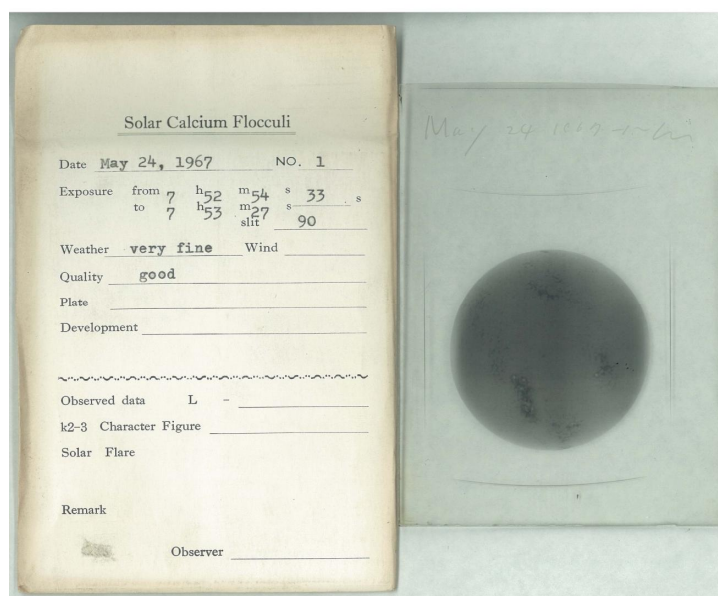 Solar Calcium Flocculi
Date May 24, 1967 NO. 1
Exposure from 7 h 52 m 54 s 33 s
to 7 h 53 m 27 s
slit 90
Weather very fine Wind
Quality good
Plate
Development
Observed data L -
k2-3 Character Figure
Solar Flare
Remark
Observer
May 24 1967